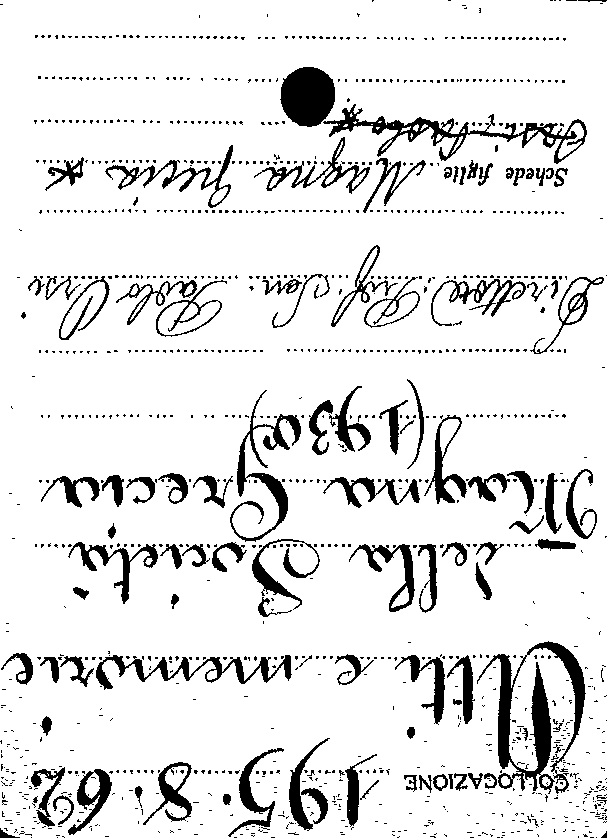 COLLOCAZIONE 195.8.62
Atti e memorie
della Società
Magna Grecia
(1930)
Direttore: Prof. Sen. Paolo Orsi
Schede figlie Magna Grecia *
Orsi, Paolo *